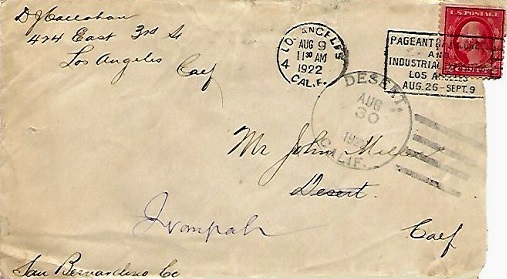 D J Callahan
424 East 3rd St
Los Angeles
Calf
LOS ANGELES
AUG 9
11 30 AM
1922
4
CALIF.
U.S. POSTAGE
PAGEANT
AND
INDUSTRIAL
LOS ANGELES
AUG. 26 - SEPT. 9
DESERT,
AUG
30
CALIF.
Mr John
Desert.
Calf
Ivanpah
San Bernardino Co